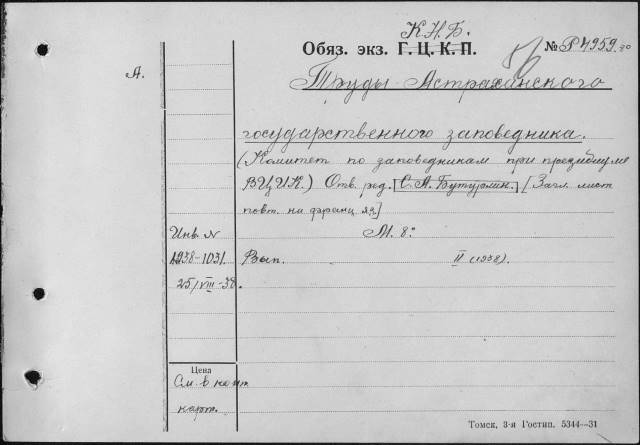 К.Н.Б.
Обяз. экз. Г. Ц. К. П. № Р4959
А.
Труды Астраханского
государственного заповедника.
(Комитет по заповедникам при президиуме
ВЦИК.) Отв. ред. [С. А. Бутурлин.] [Загл. лист
повт. на франц. яз.]
М. 8°
Инв. N
1938-1031. Вып. II (1938).
25/VIII-38.
Цена
См. в конт.
карт.
Томск, 3-я Гостип. 5344—31